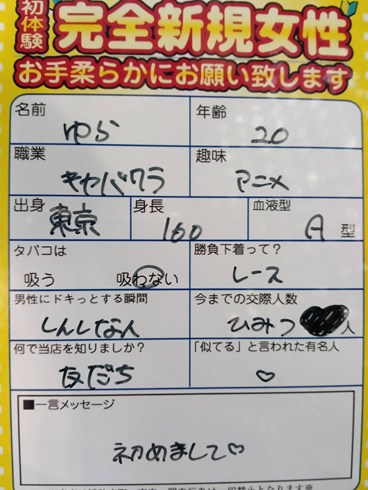 初体験
完全新規女性
お手柔らかにお願い致します
名前 ゆら 年齢 20
職業 キャバクラ 趣味 アニメ
出身 東京 身長 160 血液型 A型
タバコは 吸う 吸わない 勝負下着って? レース
男性にドキっとする瞬間 しんしな人 今までの交際人数 ひみつ 人
何で当店を知りましたか? 友だち 「似てる」と言われた有名人 ♡
■一言メッセージ
初めまして♡